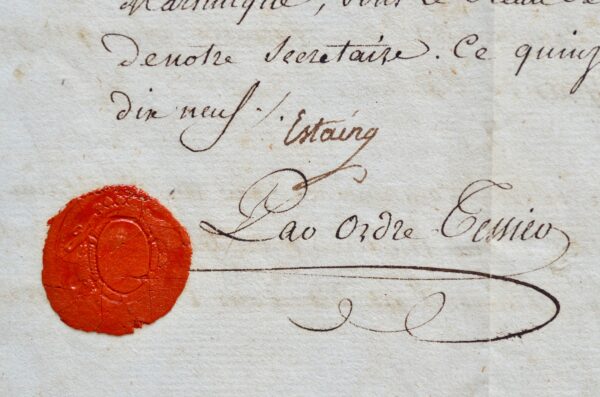 Martinique, sous le Sceau de
denotre Secretaire. Ce quinz
dix neuf ./.
Estaing
Par ordre Tessier